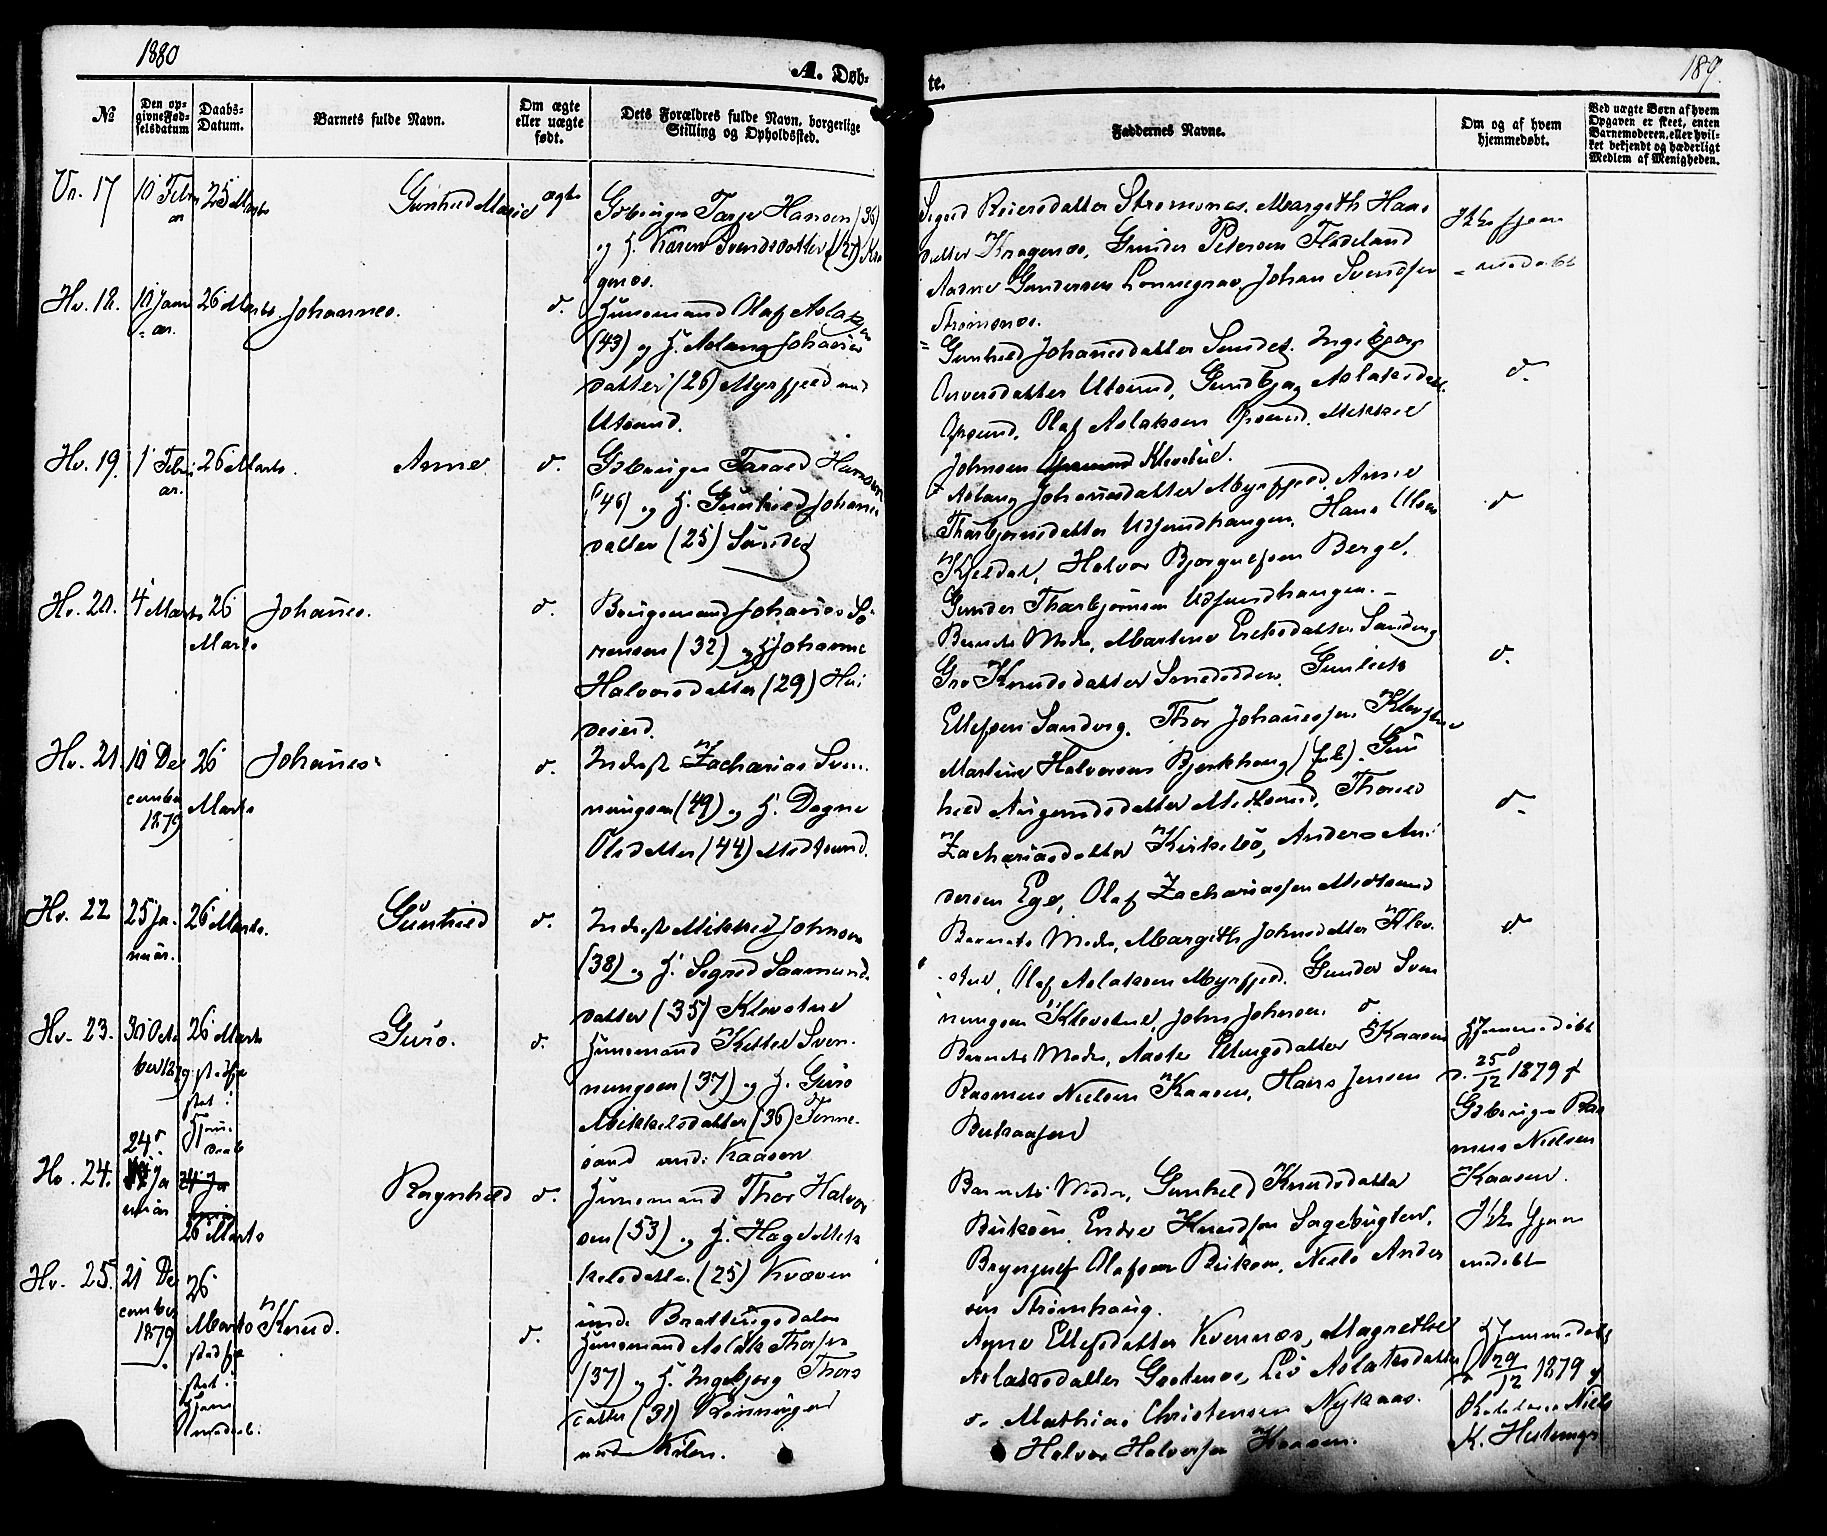 1880
A. Døb-
te.
189.
№
Den op-
givne Fød-
selsdatum
Daabs-
Datum.
Barnets fulde Navn.
Om ægte
eller uægte
født.
Dets Forældres fulde Navn, borgerlige
Stilling og Opholdssted.
Faddernes Navne.
Om og af hvem
hjemmedøbt.
Ved uægte Børn af hvem
Opgaven er skeet, enten
Barnemoderen, eller hvil-
ket bekjendt og hæderligt
Medlem af Menigheden.
Vr. 17
10 Febru
ar
25 Marts
Gunhild Marie
ægte
Gbruger Tarje Hansen (36)
og H. Karen Svendsdatter (27) Kra
genæs.
Sigrid Reiersdatter Strømsnæs, Margith Hans
datter Kragenæs, Gunder Petersen Fladeland
Aasne Gundersen Lønnegrav, Johan Svendsen
Strømsnæs.
Ikke hjem
medøbt
Hv. 18.
10 Janu
ar.
26 Marts
Johannes.
d.
Husmand Olaf Aslaksen
(43) og H. Aslaug Johannes
datter (26) Myrfjeld und
Utsund.
Gunhild Johannesdatter Sundet. Ingebjørg
Utsund, Gunbjør Aslaksdatt.
Opsund, Olaf Aslaksen Opsund. Mikkel
Johnsen Klevstul.
d.
Hv. 19.
1 Febru
ar.
26 Marts.
Anne
d.
Gbruger Tarald Hansen
(46) og H. Gunhild Johannes
datter (25) Sundet
Aslaug Johannesdatter Myrfjeld, Anne
Thorbjørnsdatter Udsundhaugen, Hans Olsen
Kjeldal, Halvor Bjørgulfsen Berge,
Gunder Thorbjørnsen Udsundhaugen.
d
Hv. 20.
4 Marts
26
Marts
Johannes.
d.
Brugsmand Johannes Sö
rensen (32) og H. Johanne
Halvorsdatter (29) Hvi
deseid.
Barnets Moder, Martine Eriksdatter Sandvig
Gro Knudsdatter Smedodden, Gunleik
Ellefsen Sandvig, Thor Johannessen
d.
Hv. 21.
10 De
cember
1879
26
Marts
Johannes
d.
Inderst Zacharias Sven
nungsen (49) og H. Dagne
Olsdatter (44) Midtsund.
Martine Halvorsen Bjerkhaug, Gun
hild Aasmundsdatter Midtsund, Thorild
Zachariasdatter Kirkebø, Anders An
dersen Ege, Olaf Zachariassen Midtsund
d.
Hv. 22
25 Ja
nuar.
26 Marts.
Gunhild
d.
Inderst Mikkel Johnsen
(38) og H. Sigrid Saamunds
datter (35) Klevstul
Barnets Moder, Margith Johnsdatter Klev
stul, Olaf Aslaksen Myrfjeld. Gunder Sven
nungsen Klevstul, John Johnsen d.
d
Hv. 23.
30 Octo
ber 1879
26 Marts
stadfæ
stet:
Hjem
døbt
Guro.
d.
Husmand Kittel Sven
nungsen (37) og H. Guro
Mikkelsdatter (36) Tønne
sand und: Kaasen
Barnets Moder, Aaste Ellingsdatter Kaasen
Rasmus Nielsen Kaasen, Hans Jensen
Birkaasen
Hjemmedøbt
d. 25/12 1879 af
Gbruger Ras
mus Nielsen
Kaasen.
Hv. 24.
24
Ja
nuar
26 Marts
Ragnhild
d.
Husmand Thor Halvor
sen (53) og H. Hæge Mik
kelsdatter (25) Kvæven
und. Brattingsdalen
Barnets Moder, Gunhild Knudsdatter
Birkøen, Endre Knudsen Sagebugten,
Brynjulf Olafsen Birkøen, Niels Ander
sen Strømhaug.
Ikke hjem
medøbt
Hv. 25.
21 De
cember
1879
26
Marts
stadfæ
stet:
Hjem
medøb:
Knud.
d.
Husmand Aslak Thorsen
(37) og H. Ingebjørg Thors
datter (31) Rønningen
und Kilen.
Ellefsdatter Kvennæs, Magrethe
Aslaksdatter, Liv Aslaksdatter
d. Mathias Christensen Nykaas.
Halvor Halvorsen Kaasen.
Hjemmedøbt
29/12 1879 af
Niels
K.